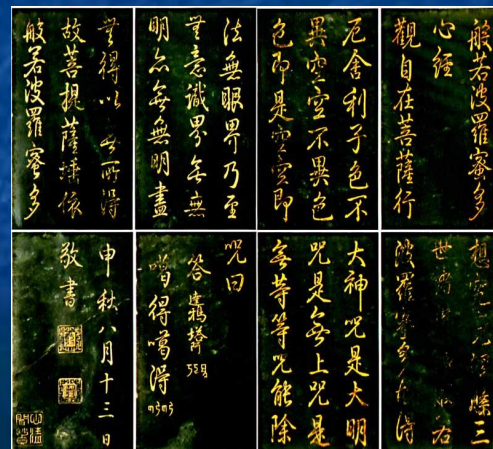 般若波羅蜜多
心經
觀自在菩薩行
厄舍利子色不
異空空不異色
色即是空空即
法無眼界乃至
無意識界無無
明亦無無明盡
無得以無所得
故菩提薩埵依
般若波羅蜜多
想究竟涅槃三
世諸
波羅蜜多故得
大神咒是大明
咒是無上咒是
無等等咒能除
咒曰
答
得 得
申秋八月十三日
敬書